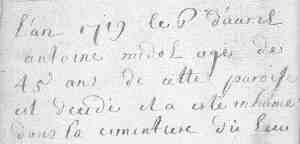 l'an 1719 le P d'avril
antoine midol agés de
45 ans de cette paroisse
est decedé et a esté inhumé
dans la cimentiere du lieu